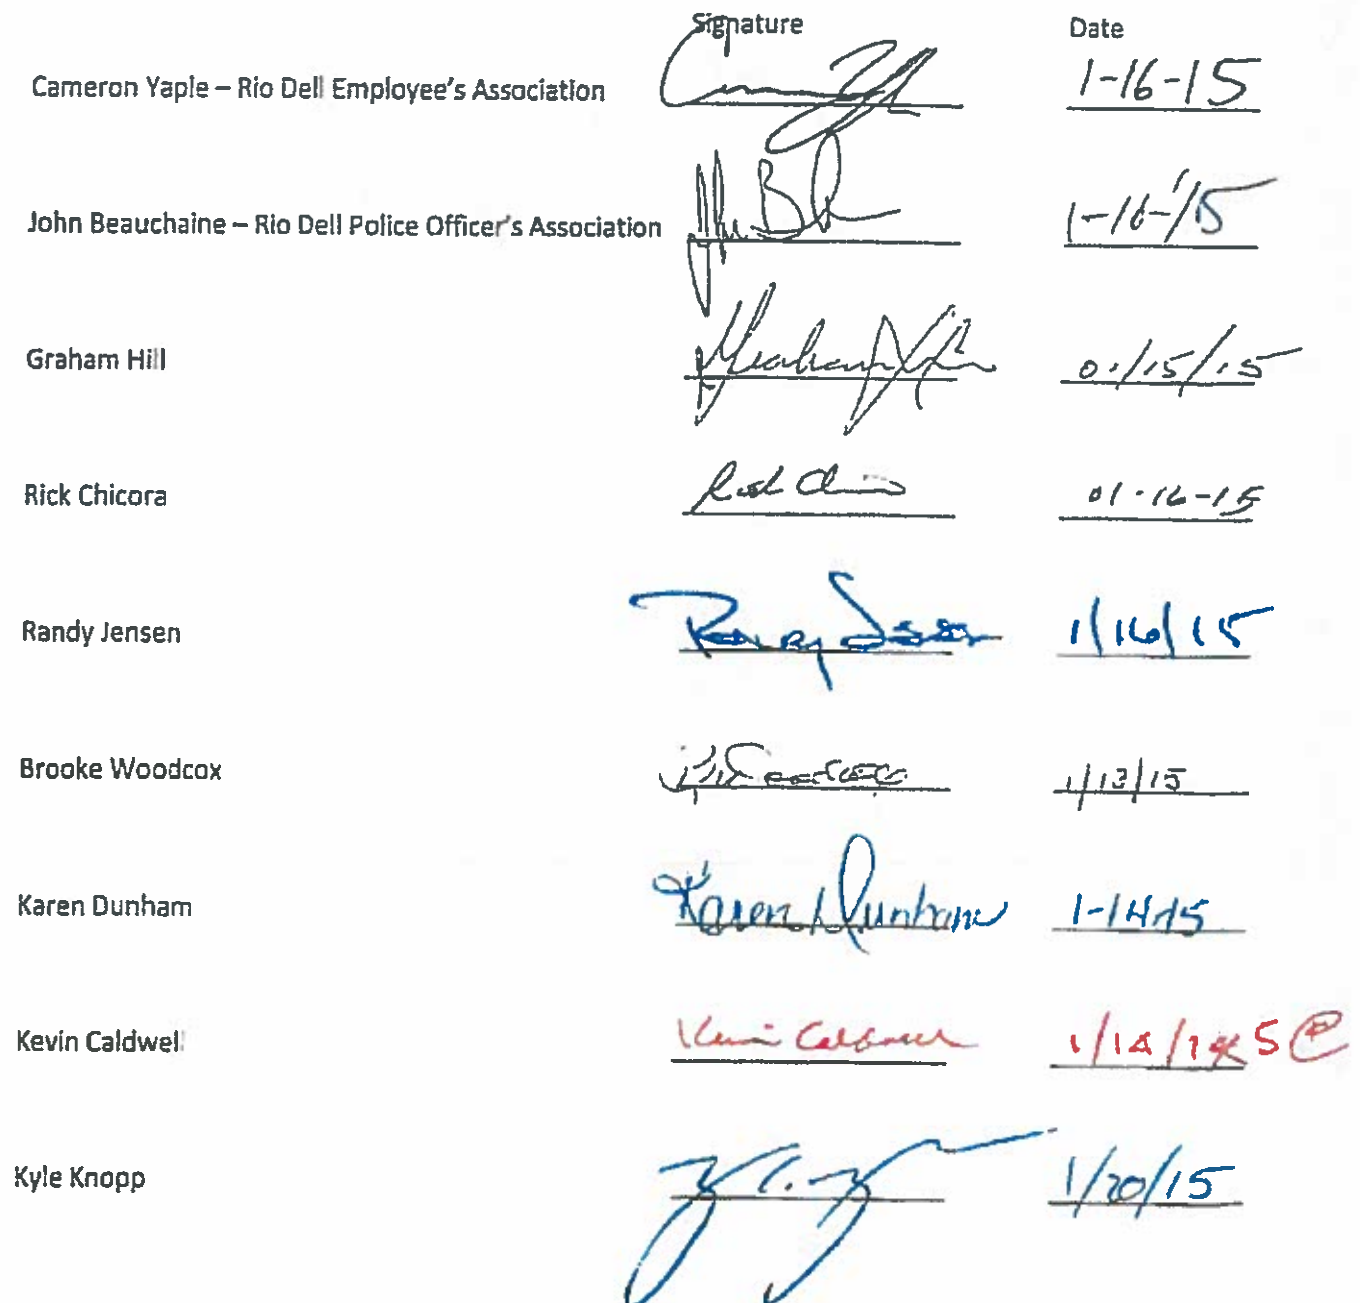 Signature Date
Cameron Yaple – Rio Dell Employee's Association 1-16-15
John Beauchaine – Rio Dell Police Officer's Association 1-16-15
Graham Hill Graham Hill 01/15/15
Rick Chicora Rick Chicora 01-16-15
Randy Jensen Randy Jensen 1/16/15
Brooke Woodcox BWoodcox 1/13/15
Karen Dunham Karen Dunham 1-14-15
Kevin Caldwell Kevin Caldwell 1/14/15
Kyle Knopp 1/20/15